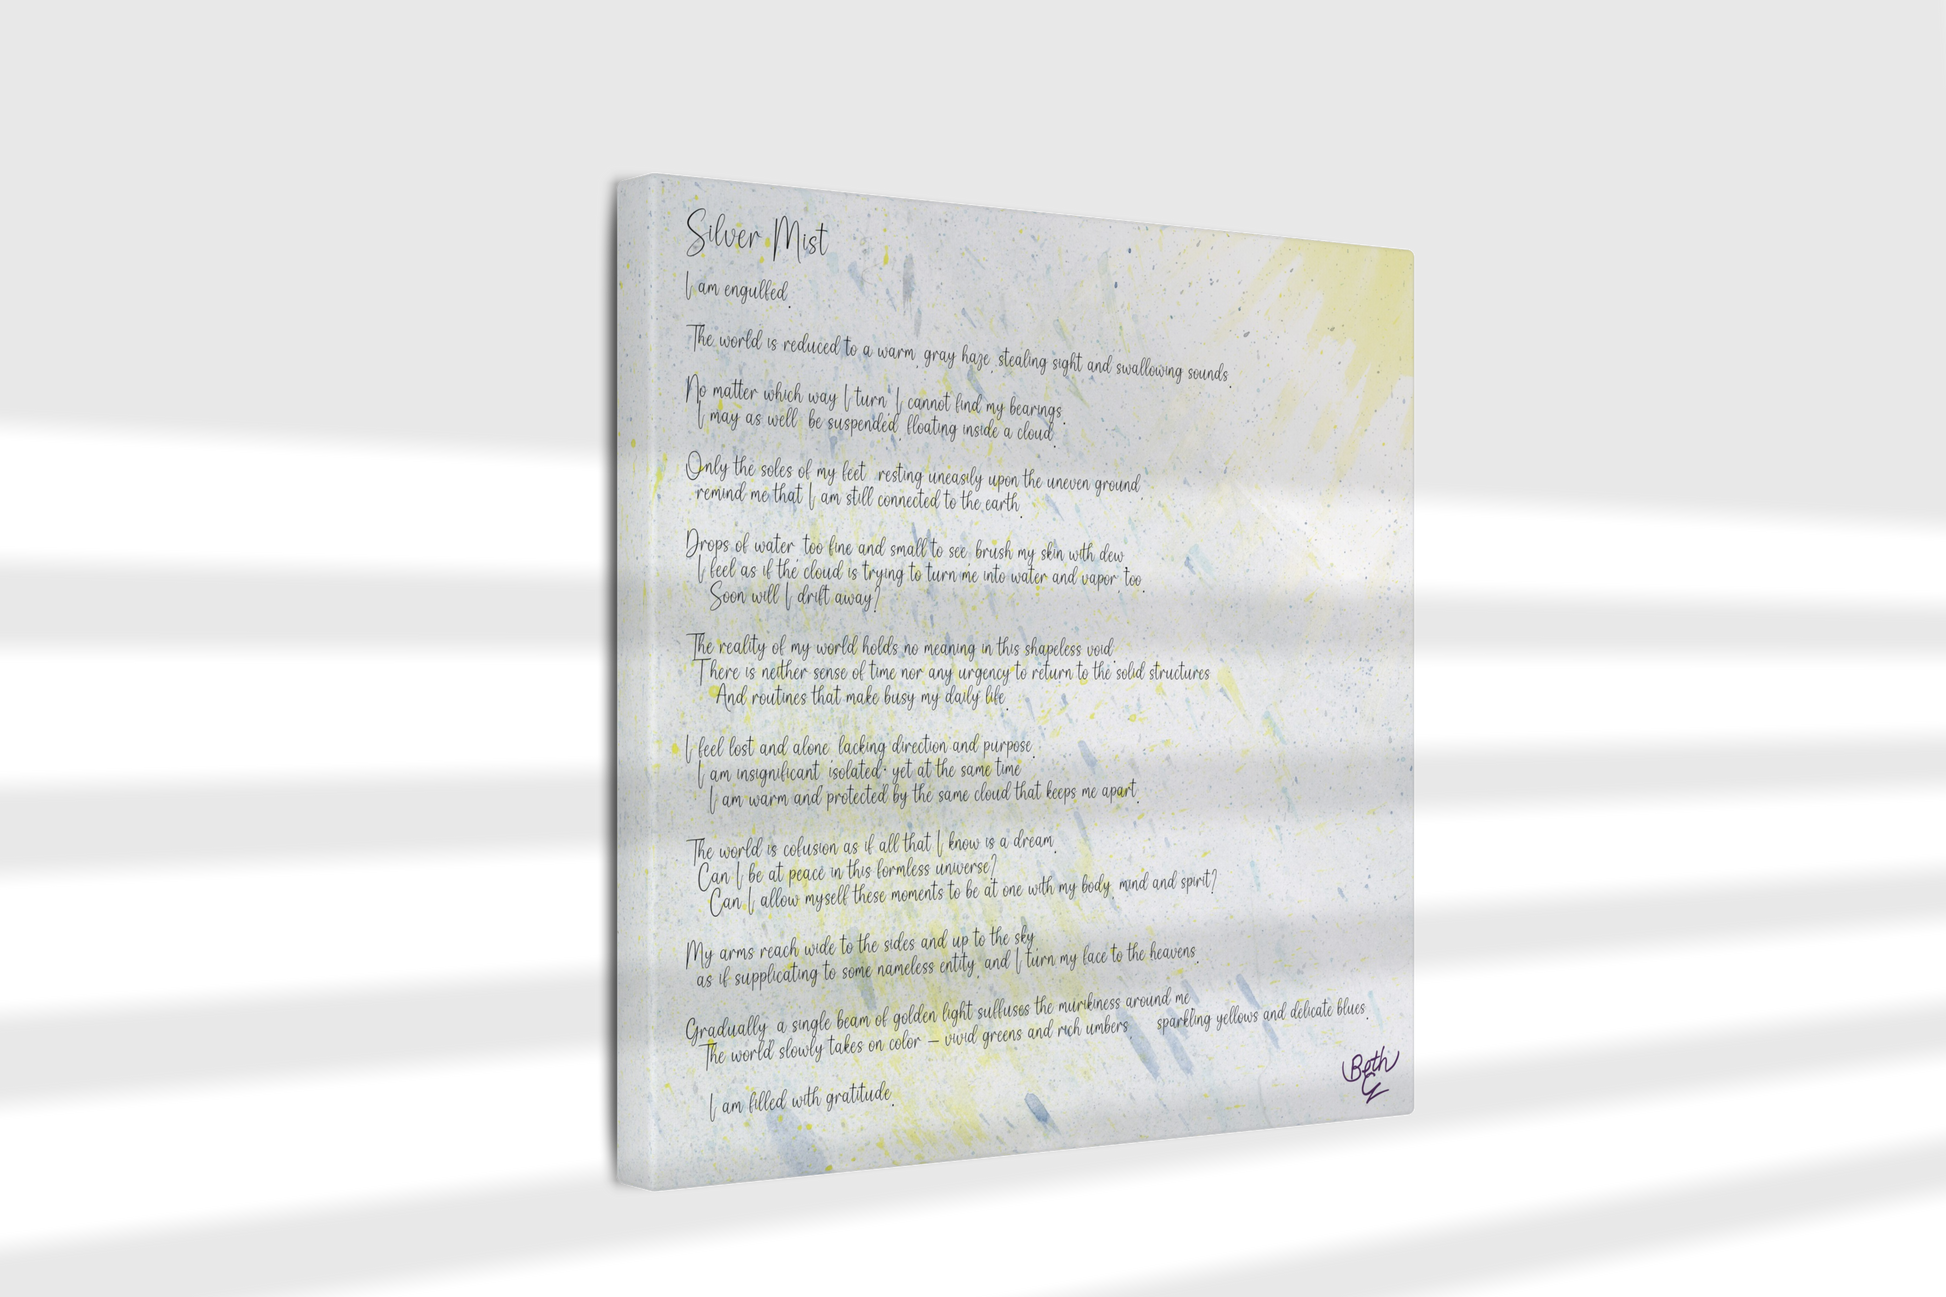 Silver Mist
I am engulfed.
The world is reduced to a warm, gray haze, stealing sight and swallowing sounds.
No matter which way I turn, I cannot find my bearings.
I may as well be suspended, floating inside a cloud.
Only the soles of my feet, resting uneasily upon the uneven ground,
remind me that I am still connected to the earth.
Drops of water, too fine and small to see, brush my skin with dew.
I feel as if the cloud is trying to turn me into water and vapor, too.
Soon will I drift away?
The reality of my world holds no meaning in this shapeless void.
There is neither sense of time nor any urgency to return to the solid structures
And routines that make busy my daily life.
I feel lost and alone, lacking direction and purpose.
I am insignificant, isolated; yet at the same time
I am warm and protected by the same cloud that keeps me apart.
The world is cofusion as if all that I know is a dream.
Can I be at peace in this formless universe?
Can I allow myself these moments to be at one with my body, mind and spirit?
My arms reach wide to the sides and up to the sky,
as if supplicating to some nameless entity, and I turn my face to the heavens.
Gradually, a single beam of golden light suffuses the murikiness around me.
The world slowly takes on color – vivid greens and rich umbers, sparkling yellows and delicate blues.
I am filled with gratitude.
Beth